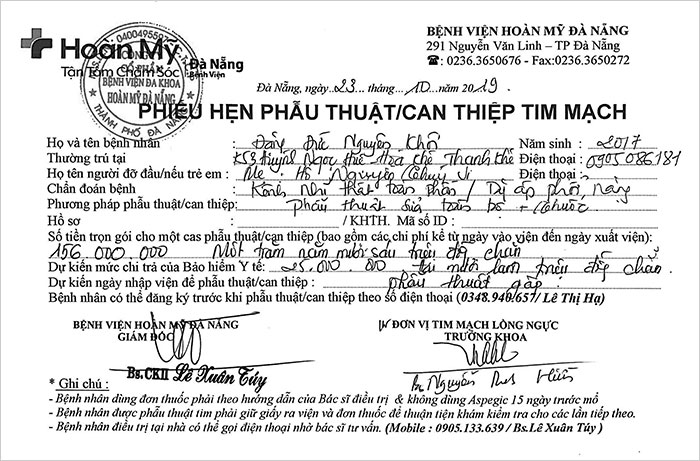 Hoàn Mỹ Đà Nẵng
Bệnh Viện
Tận Tâm Chăm Sóc
CÔNG TY
CỔ PHẦN
BỆNH VIỆN ĐA KHOA
HOÀN MỸ ĐÀ NẴNG
THÀNH PHỐ ĐÀ NẴNG
BỆNH VIỆN HOÀN MỸ ĐÀ NẴNG
291 Nguyễn Văn Linh – TP Đà Nẵng
☎: 0236.3650676 - Fax:0236.3650272
Đà Nẵng, ngày..23...tháng...10...năm 2019.
PHIẾU HẸN PHẪU THUẬT/CAN THIỆP TIM MẠCH
Họ và tên bệnh nhân : Đặng Đức Nguyên Khôi Năm sinh : 2017
Thường trú tại : K53 Huỳnh Ngọc Huệ - Hòa Khê Thanh Khê Điện thoại : 0905086181
Họ tên người đỡ đầu/nếu trẻ em : Mẹ : Hồ Nguyên Điện thoại :
Chẩn đoán bệnh : Kênh Nhĩ Thất toàn phần / Tăng áp phổi, nặng
Phương pháp phẫu thuật/can thiệp: Phẫu thuật sửa toàn bộ + thuốc
Hồ sơ : / KHTH. Mã số ID :
Số tiền trọn gói cho một cas phẫu thuật/can thiệp (bao gồm các chi phí kể từ ngày vào viện đến ngày xuất viện):
156.000.000 Một trăm năm mươi sáu triệu đồng chẵn
Dự kiến mức chi trả của Bảo hiểm Y tế: 25.000.000 hai mươi lăm triệu đồng chẵn
Dự kiến ngày nhập viện để phẫu thuật/can thiệp : phẫu thuật gấp
Bệnh nhân có thể đăng ký trước khi phẫu thuật/can thiệp theo số điện thoại (0348.940.657/ Lê Thị Hạ)
BỆNH VIỆN HOÀN MỸ ĐÀ NẴNG
GIÁM ĐỐC
Bs.CKII Lê Xuân Túy
ĐƠN VỊ TIM MẠCH LỒNG NGỰC
TRƯỞNG KHOA
Bs. Nguyễn Đức Hiền
* Ghi chú :
- Bệnh nhân dùng đơn thuốc phải theo hướng dẫn của Bác sĩ điều trị & không dùng Aspegic 15 ngày trước mổ
- Bệnh nhân được phẫu thuật tim phải giữ giấy ra viện và đơn thuốc để thuận tiện khám kiểm tra cho các lần tiếp theo.
- Bệnh nhân điều trị tại nhà có thể gọi điện thoại nhờ bác sĩ tư vấn. (Mobile : 0905.133.639 / Bs.Lê Xuân Túy )